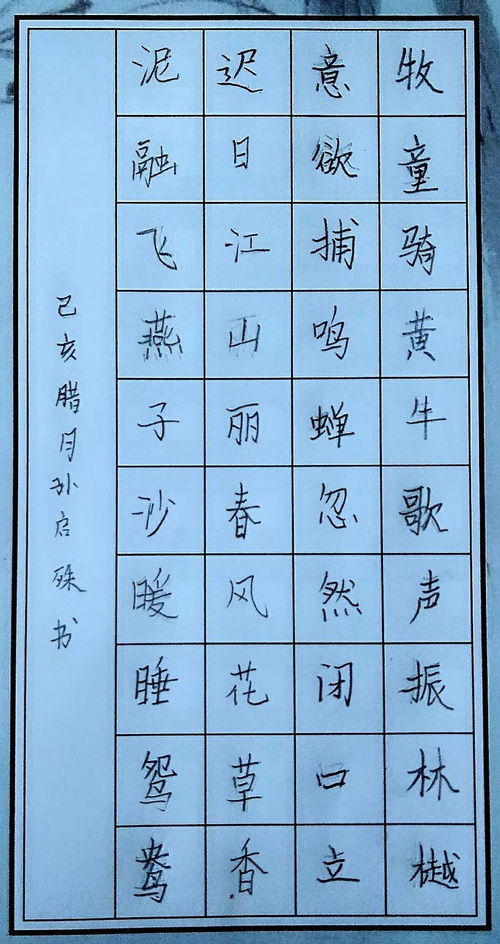 牧童骑黄牛歌声振林樾
意欲捕鸣蝉忽然闭口立
迟日江山丽春风花草香
泥融飞燕子沙暖睡鸳鸯
己亥腊月孙启殊书